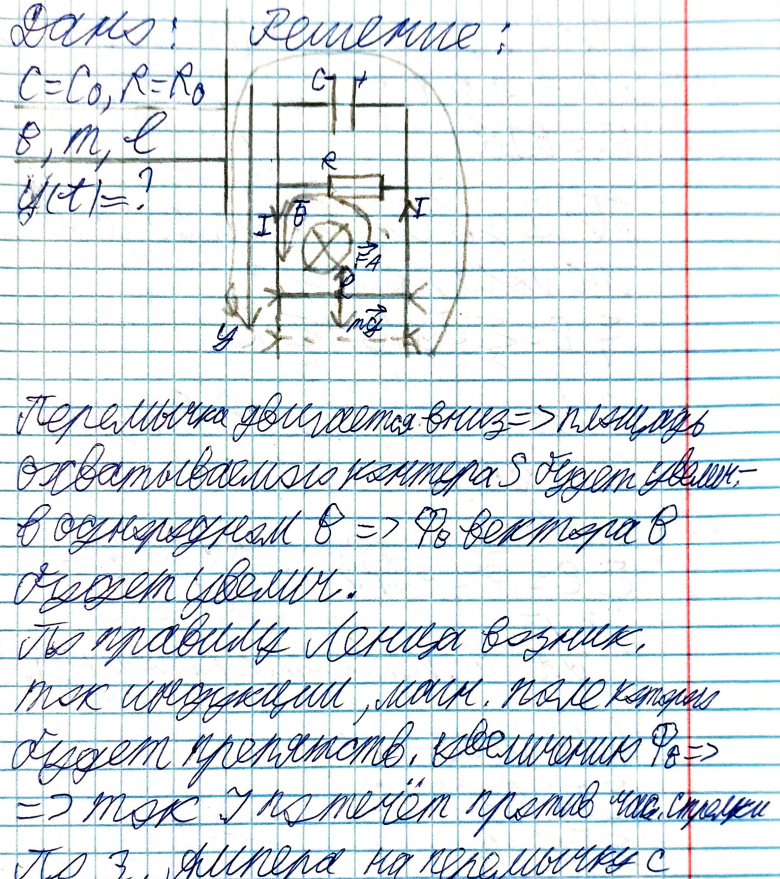 Дано: Решение:
C=C₀, R=R₀
B, m, l
y(t)=?
C +
R
I B⃗ I
F⃗A
l
mg⃗
y
Перемычка двигается вниз => площадь
охватываемого контура S будет увелич.-
в однородном B => Φ_B вектора B
будет увелич.
По правилу Ленца возник.
ток индукции, магн. поле которого
будет препятств. увеличению Φ_B =>
=> ток I потечёт против час. стрелки
По з. Ампера на перемычку с